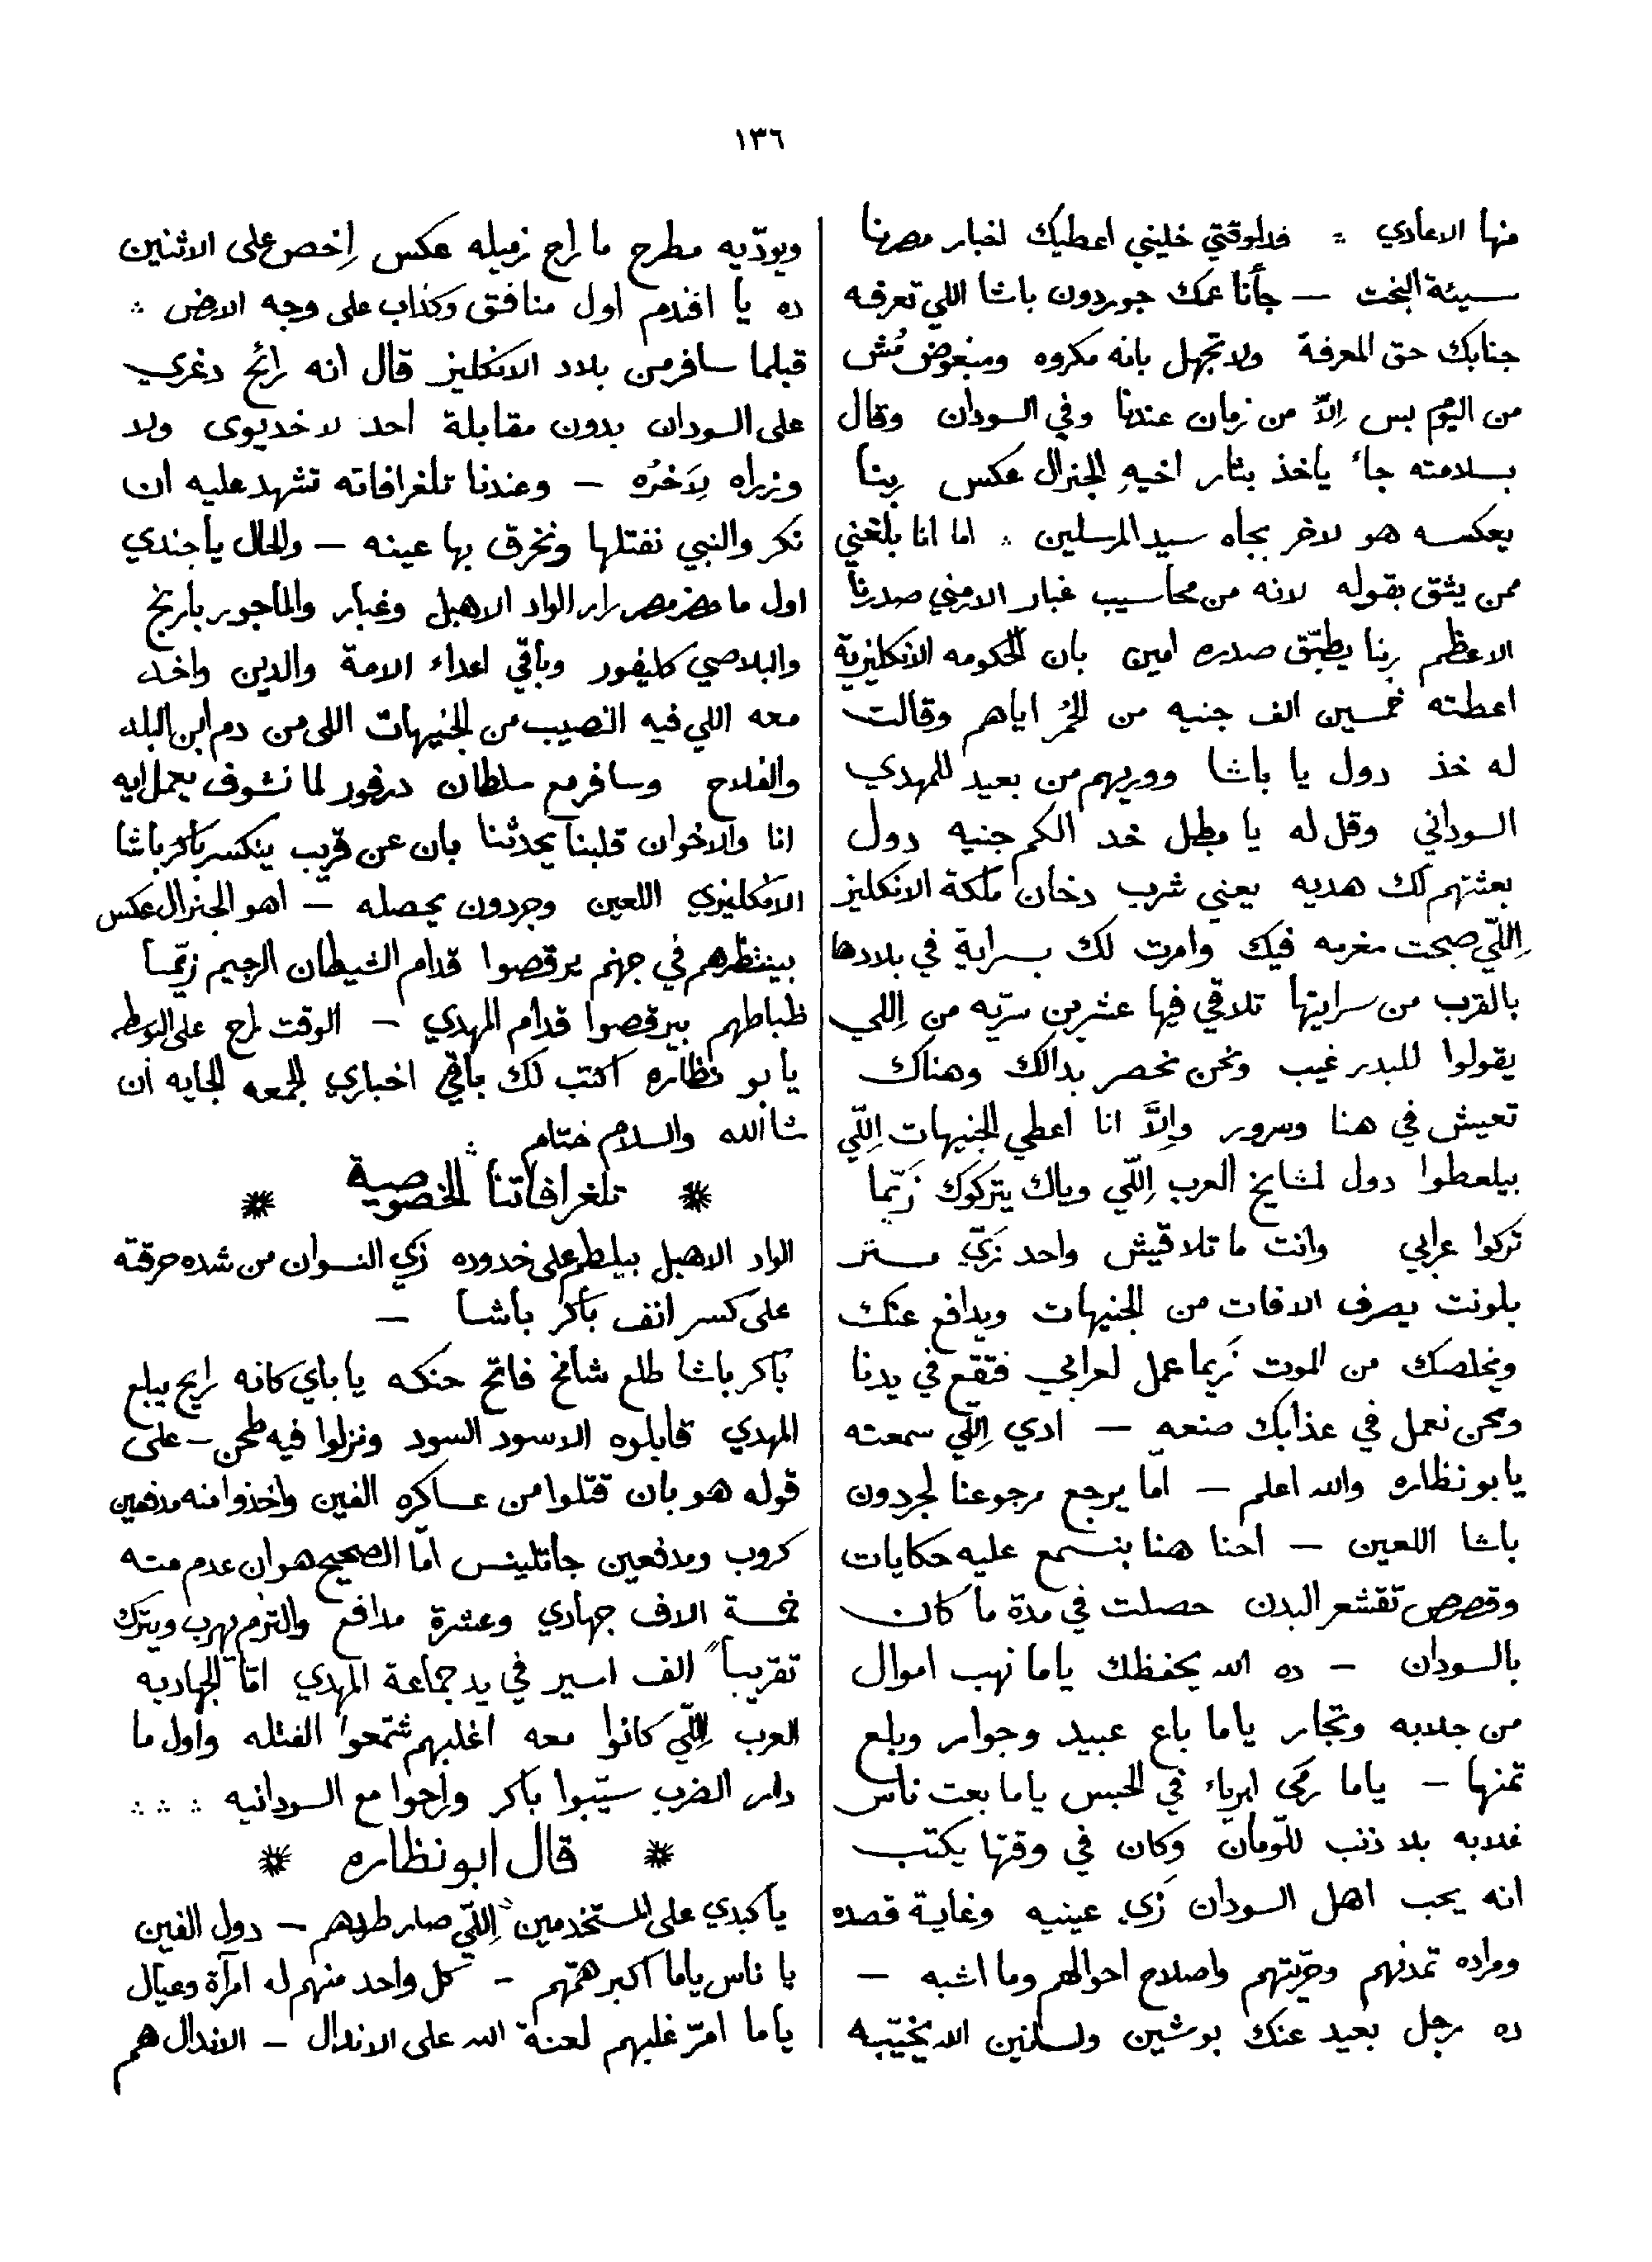 ١٣٦
منها الاعادي ؞ فدلوقتي خليني اعطيك اخبار مصرنا
سيئة البخت — جأنا عمك جوردون باشا اللي تعرفه
جنابك حق المعرفة ولا تجهل بانه مكروه ومبغوض مُش
من اليوم بس اِلاّ من زمان عندنا وفي السودان وقال
بسلامته جاء ياخذ بثار اخيهِ الجنرال عكس ربنا
يعكسه هو لاخر بجاه سيد المرسلين ؞ اما انا بلغني
ممن يثق بقوله لانه من محاسيب غبار الارمني صدرنا
الاعظم ربنا يطبّق صدره امين بان الحكومه الانكليزية
اعطته خمسين الف جنيه من الحُمْر اياهم وقالت
له خذ دول يا باشا ووريهم من بعيد للمهدي
السوداني وقل له يا بطل خد الكم جنيه دول
بعثتهم لك هديه يعني شرب دخان ملكة الانكليز
اِللّي صبحت مغرمه فيك وامرت لك بسراية في بلادها
بالقرب من سرايتها تلاقي فيها عشرين سرّيه من اِللي
يقولوا للبدر غيب ونحن نحصر بدالك وهناك
تعيش في هنا وسرور واِلاَّ انا اعطي الجنيهات اِللّي
بيلعطوا دول لمشايخ العرب اِللّي وياك يتركوك زَيّما
تركوا عرابي وانت ما تلاقيش واحد زَيّ مستر
بلونت يصرف الافات من الجنيهات ويدافع عنك
ويخلصك من الموت زَيما عمل لعرابي فتقع في يدنا
ونحن نعمل في عذابك صنعه — ادي اِللّي سمعته
يا بو نظاره والله اعلم — امّا يرجع مرجوعنا لجردون
باشا اللعين — احنا هنا بنسمع عليه حكايات
وقصص تقشعر البدن حصلت في مدة ما كان
بالسودان — ده الله يحفظك ياما نهب اموال
من جلابه وتجار ياما باع عبيد وجوار وبلع
تمنها — ياما رمى ابرياء في الحبس ياما بعت ناس
غلابه بلا ذنب للّومان وكان في وقتها يكتب
انه يحب اهل السودان زي عينيه وغاية قصده
ومراده تمدنهم وحرّيتهم واصلاح احوالهم وما اشبه —
ده رجل بعيد عنك بوشين ولسانين الله يخيّبه
ويودّيه مطرح ما راح زميله عكس اِخص على الاثنين
ده يا افندم اول منافق وكذاب على وجه الارض ؞
قبلما سافر من بلاد الانكليز قال انه رائح دغري
على السودان بدون مقابلة احد لا خديوى ولا
وزراه لِاَخرُه — وعندنا تلغرافاته تشهد عليه ان
نكر والنبي نفتلها ونخرق بها عينه — والحال يا جندي
اول ما حضر مصر زار الواد الاهبل وغبار والماجور بارنج
والبلاصي كليفور وباقي اعداء الامة والدين واخد
معه اللي فيه النصيب من الجنيهات اللى من دم ابن البلد
والفلاح وسافر مع سلطان درفور لما نشوف يعمل ايه
انا والاخوان قلبنا يحدثنا بان عن قريب ينكسر باكر باشا
الانكليزي اللعين وجردون يحصله — اهو الجنرال عكس
بينتظرهم في جهنم يرقصوا قدام الشيطان الرجيم زيّما
ظباطهم بيرقصوا قدام المهدي — الوقت راح على البوسطه
يا بو نظاره اكتب لك باقي اخباري الجمعه الجايه ان
شا الله والسلام ختام ؞
❋ تلغرافاتنا الخصوصية ❋
الواد الاهبل بيلطم على خدوده زي النسوان من شده حرقته
على كسر انف باكر باشا —
باكر باشا طلع شامخ فاتح حنكه يا باي كانه رايح يبلع
المهدي قابلوه الاسود السود ونزلوا فيه طحن — على
قوله هو بان قتلوا من عساكره الفين واخذوا منه مدفعين
كروب ومدفعين جاتلينس امّا الصحيح هو ان عدم منه
خمسة الاف جهادي وعشرة مدافع والتزم يهرب ويترك
تقريباً الف اسير في يد جماعة المهدي امّا الجهاديه
العرب اِللّي كانوا معه اغلبهم شمّعوا الفتله واول ما
دار الضرب سيّبوا باكر وراحوا مع السودانيه ؞ ؞ ؞
❋ قال ابو نظاره ❋
يا كبدي على المستخدمين اِللّي صار طردهم — دول الفين
يا ناس ياما اكبر همّهم — كل واحد منهم له امرأة وعيال
ياما امرّ غلبهم لعنة الله على الاندال — الاندال هم